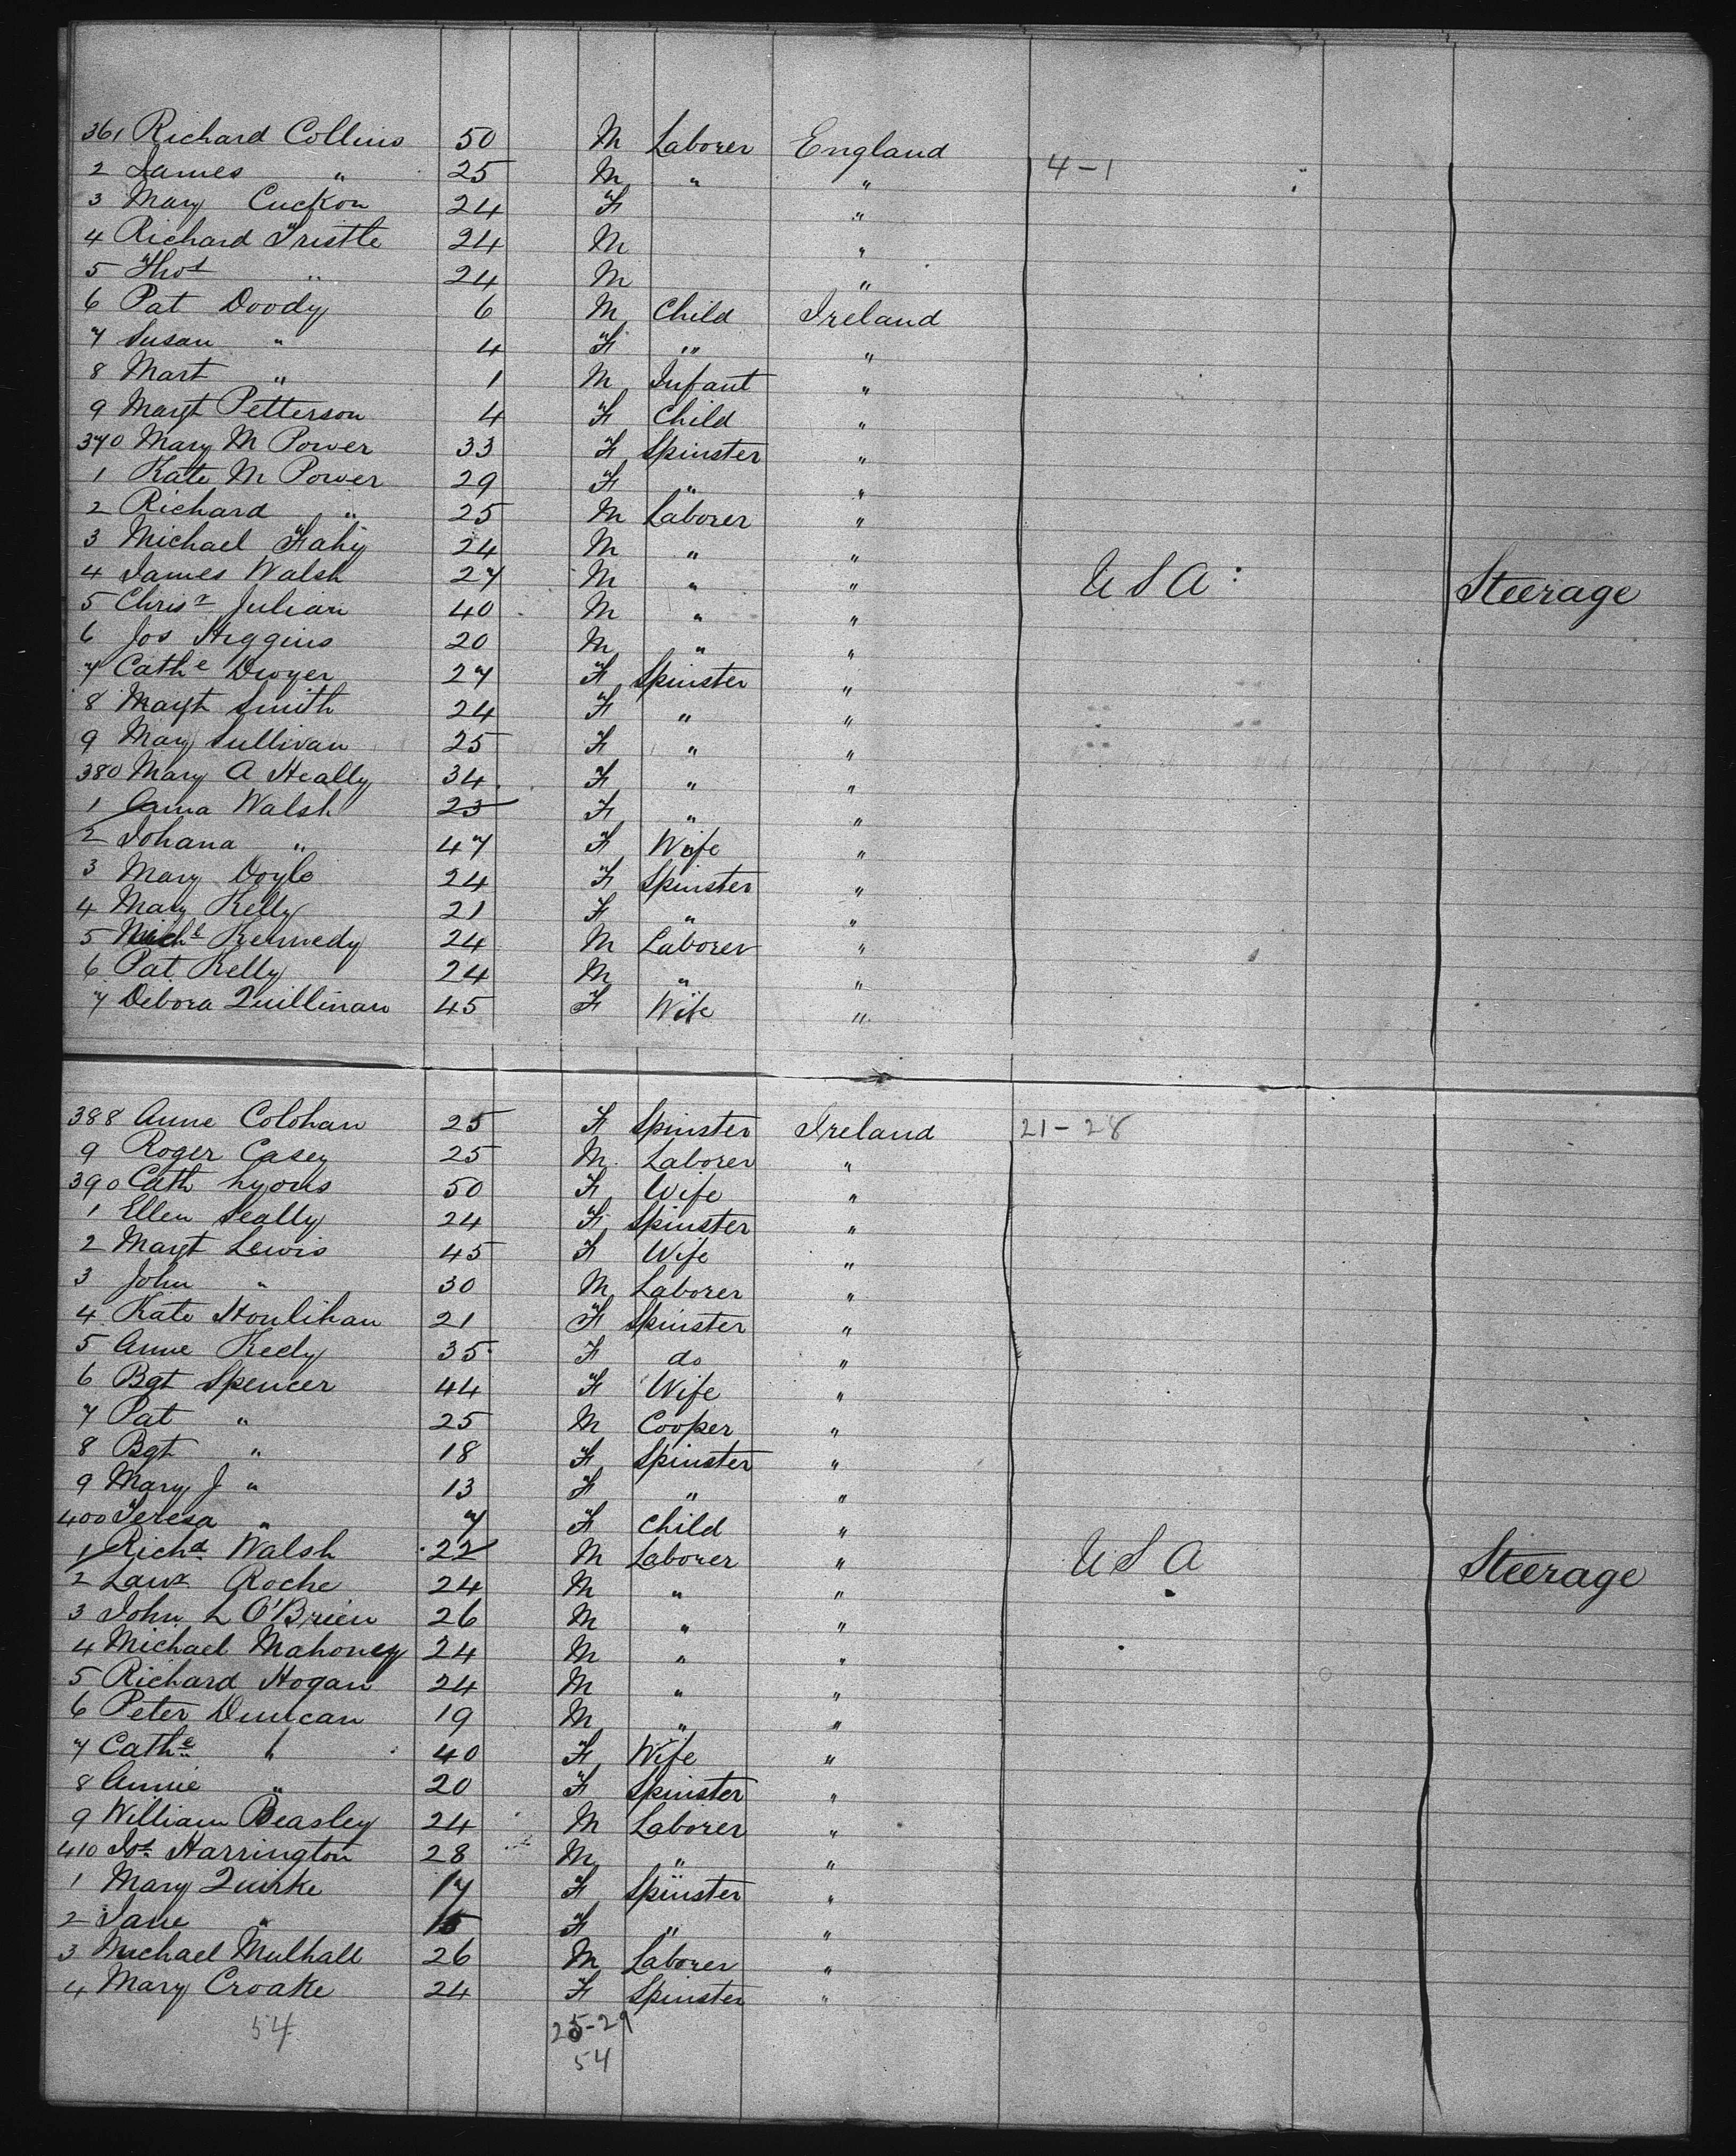 361 Richard Collins 50 M Laborer England
2 James " 25 M " " 4-1
3 Mary Cuckon 24 F "
4 Richard Tristle 24 M "
5 Thos " 24 M "
6 Pat Doody 6 M Child Ireland
7 Susan " 4 F " "
8 Mart " 1 M Infant "
9 Margt Petterson 4 F Child "
370 Mary M Power 33 F Spinster "
1 Kate M Power 29 F " "
2 Richard " 25 M Laborer "
3 Michael Fahy 24 M " "
4 James Walsh 27 M " " U S A : Steerage
5 Chrisr Julian 40 M " "
6 Jos Higgins 20 M " "
7 Cathe Dwyer 27 F Spinster "
8 Margt Smith 24 F " "
9 Mary Sullivan 25 F " "
380 Mary A Heally 34 F " "
1 Anna Walsh 23 F " "
2 Johana " 47 F Wife "
3 Mary Doyle 24 F Spinster "
4 Mary Kelly 21 F " "
5 Michl Kennedy 24 M Laborer "
6 Pat Kelly 24 M " "
7 Debora Quillinan 45 F Wife "
388 Anne Colohan 25 F Spinster Ireland 21-28
9 Roger Casey 25 M Laborer "
390 Cath Lyons 50 F Wife "
1 Ellen Seally 24 F Spinster "
2 Margt Lewis 45 F Wife "
3 John " 30 M Laborer "
4 Kate Houlihan 21 F Spinster "
5 Anne Kedy 35 F do "
6 Bgt Spencer 44 F Wife "
7 Pat " 25 M Cooper "
8 Bgt " 18 F Spinster "
9 Mary J " 13 F " "
400 Teresa " 7 F Child "
1 Richd Walsh 22 M Laborer " U S A Steerage
2 Lawr Roche 24 M " "
3 John L O'Brien 26 M " "
4 Michael Mahoney 24 M " "
5 Richard Hogan 24 M " "
6 Peter Duncan 19 M " "
7 Cathe " 40 F Wife "
8 Annie " 20 F Spinster "
9 William Beasley 24 M Laborer "
410 Jos Harrington 28 M " "
1 Mary Quirke 17 F Spinster "
2 Jane " 15 F " "
3 Michael Mulhall 26 M Laborer "
4 Mary Croake 24 F Spinster "
54 25-29
54